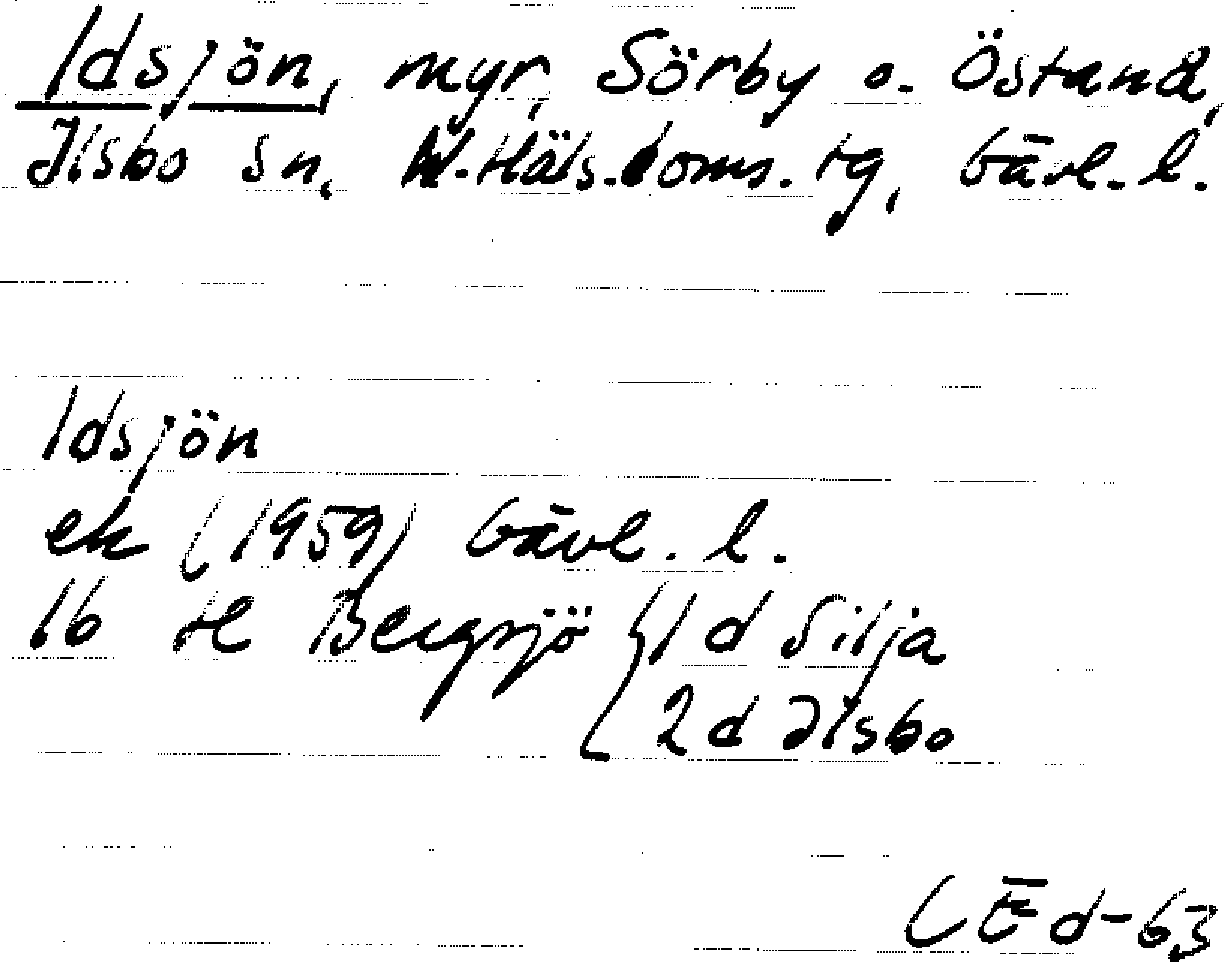 Idsjön, myr, Sörby o. Östanå,
Ilsbo sn, N.Häls.doms.tg, Gävl. l.
Idsjön
ek (1959) Gävl. l.
16 H Bergsjö { 1 d Silja
2 d Ilsbo
CEd-63